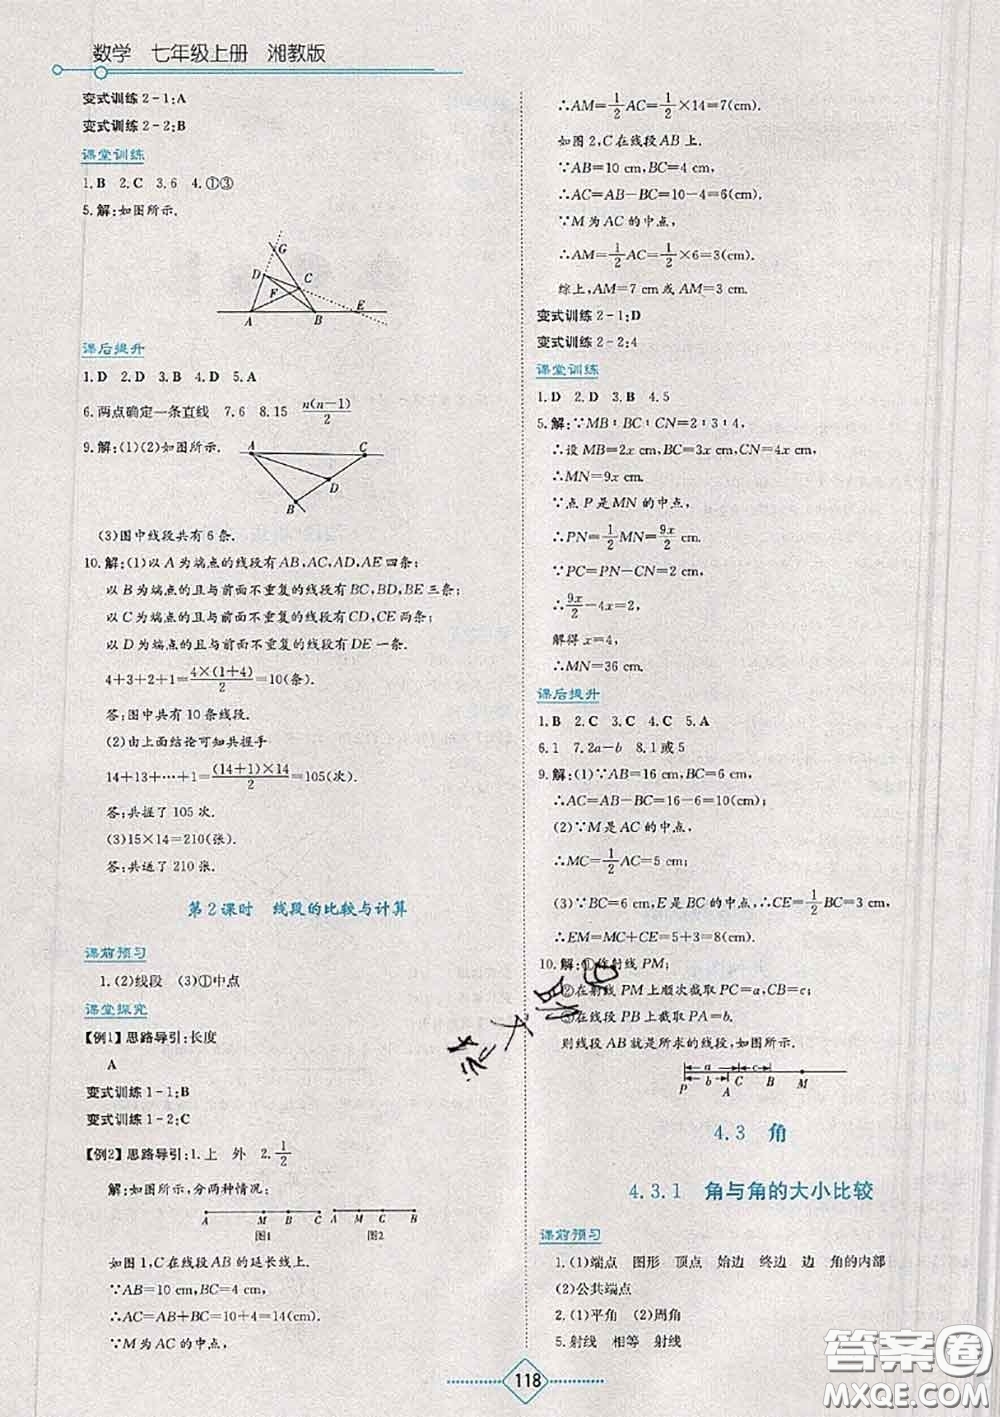 数学　七年级上册　湘教版
变式训练2-1:A
变式训练2-2:B
课堂训练
1.B　2.C　3.6　4.①③
5.解:如图所示.
G
D
C
F
E
A
B
课后提升
1.D　2.D　3.B　4.D　5.A
6.两点确定一条直线　7.6　8.15　n(n-1)/2
9.解:(1)(2)如图所示.
A
C
D
B
(3)图中线段共有6条.
10.解:(1)以A为端点的线段有AB,AC,AD,AE四条;
以B为端点的且与前面不重复的线段有BC,BD,BE三条;
以C为端点的且与前面不重复的线段有CD,CE两条;
以D为端点的且与前面不重复的线段有DE一条.
4+3+2+1=4×(1+4)/2=10(条).
答:图中共有10条线段.
(2)由上面结论可知共握手
14+13+…+1=(14+1)×14/2=105(次).
答:共握了105次.
(3)15×14=210(张).
答:共送了210张.
第2课时　线段的比较与计算
课前预习
1.(2)线段　(3)①中点
课堂探究
【例1】思路导引:长度
A
变式训练1-1:B
变式训练1-2:C
【例2】思路导引:1.上　外　2.1/2
解:如图所示,分两种情况:
A M B C
图1
A M C B
图2
如图1,C在线段AB的延长线上.
∵AB=10 cm,BC=4 cm,
∴AC=AB+BC=10+4=14(cm).
∵M为AC的中点,
∴AM=1/2AC=1/2×14=7(cm).
如图2,C在线段AB上.
∵AB=10 cm,BC=4 cm,
∴AC=AB-BC=10-4=6(cm).
∵M为AC的中点,
∴AM=1/2AC=1/2×6=3(cm).
综上,AM=7 cm或AM=3 cm.
变式训练2-1:D
变式训练2-2:4
课堂训练
1.D　2.D　3.B　4.5
5.解:∵MB∶BC∶CN=2∶3∶4,
∴设MB=2x cm,BC=3x cm,CN=4x cm.
∴MN=9x cm.
∵点P是MN的中点,
∴PN=1/2MN=9x/2 cm.
∵PC=PN-CN=2 cm,
∴9x/2-4x=2,
解得x=4,
∴MN=36 cm.
课后提升
1.B　2.C　3.C　4.C　5.A
6.1　7.2a-b　8.1或5
9.解:(1)∵AB=16 cm,BC=6 cm,
∴AC=AB-BC=16-6=10(cm);
(2)∵M是AC的中点,
∴MC=1/2AC=5 cm;
(3)∵BC=6 cm,E是BC的中点,∴CE=1/2BC=3 cm,
∴EM=MC+CE=5+3=8(cm).
10.解:①作射线PM;
②在射线PM上顺次截取PC=a,CB=c;
③在线段PB上截取PA=b.
则线段AB就是所求的线段,如图所示.
a c
b
P A C B M
4.3　角
4.3.1　角与角的大小比较
课前预习
1.(1)端点　图形　顶点　始边　终边　边　角的内部
(2)公共端点
2.(1)平角　(2)周角
5.射线　相等　射线
118
答案圈
MXQE.COM